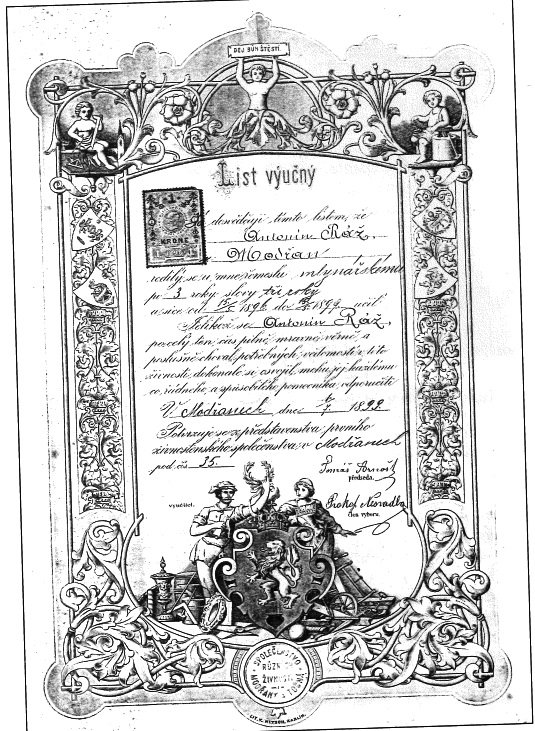 DEJ BŮH ŠTĚSTÍ
List výučný
1
KRONE
dosvědčuji tímto listem, že
Antonín Ráž,
z Modřan
řemeslu mlynářskému
po 3 roky slovy tři roky
a sice od 1896 do 1899 učil
Jelikož se Antonín Ráž,
po celý ten čas pilně, mravně, věrně, a
poslušně choval, potřebných vědomostí v této
živnosti dokonale si osvojil, mohu jej každému
co řádného, a způsobilého pomocníka odporučiti
V Modřanech dne 1899
Potvrzuje se z představenstva prvního
živnostenského společenstva, v Modřanech
pod čís 35.
Tomáš
předseda.
vyučitel.
Prokop
člen výboru.
SPOLEČENSTVO
RŮZN
ŽIVNOSTÍ
MODŘANY
LIT. KARLÍN.